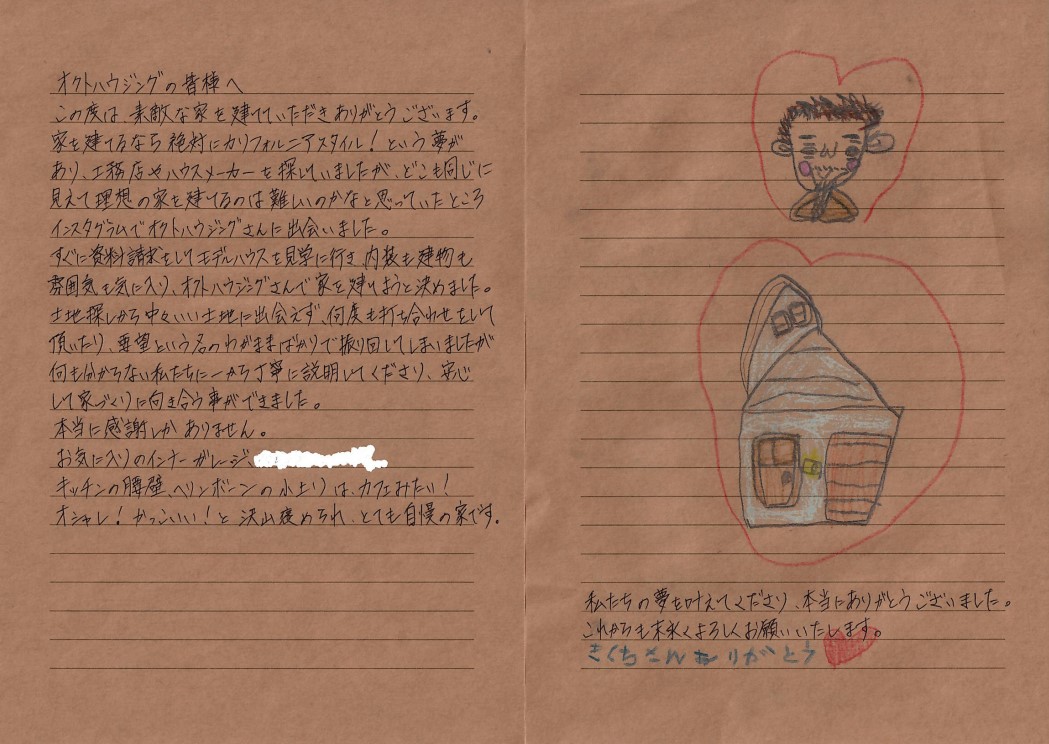 オクトハウジングの皆様へ
この度は、素敵な家を建てていただきありがとうございます。
家を建てるなら絶対にカリフォルニアスタイル！という夢が
あり、工務店やハウスメーカーを探していましたが、どこも同じに
見えて理想の家を建てるのは難しいのかなと思っていたところ
インスタグラムでオクトハウジングさんに出会いました。
すぐに資料請求をしてモデルハウスを見学に行き、内装も建物も
雰囲気も気に入り、オクトハウジングさんで家を建てようと決めました。
土地探しから中々いい土地に出会えず、何度も打ち合わせをして
頂いたり、要望という名のわがままばかりで振り回してしまいましたが
何も分からない私たちに一から丁寧に説明してくださり、安心
して家づくりに向き合う事ができました。
本当に感謝しかありません。
お気に入りのインナーガレージ、
キッチンの腰壁、ヘリンボーンの小上りは、カフェみたい！
オシャレ！かっこいい！と沢山褒められ、とても自慢の家です。
私たちの夢を叶えてくださり、本当にありがとうございました。
これからも末永くよろしくお願いいたします。
きくちさんありがとう